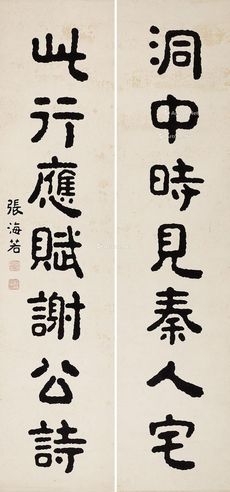 洞中時見秦人宅
此行應賦謝公詩
張海若